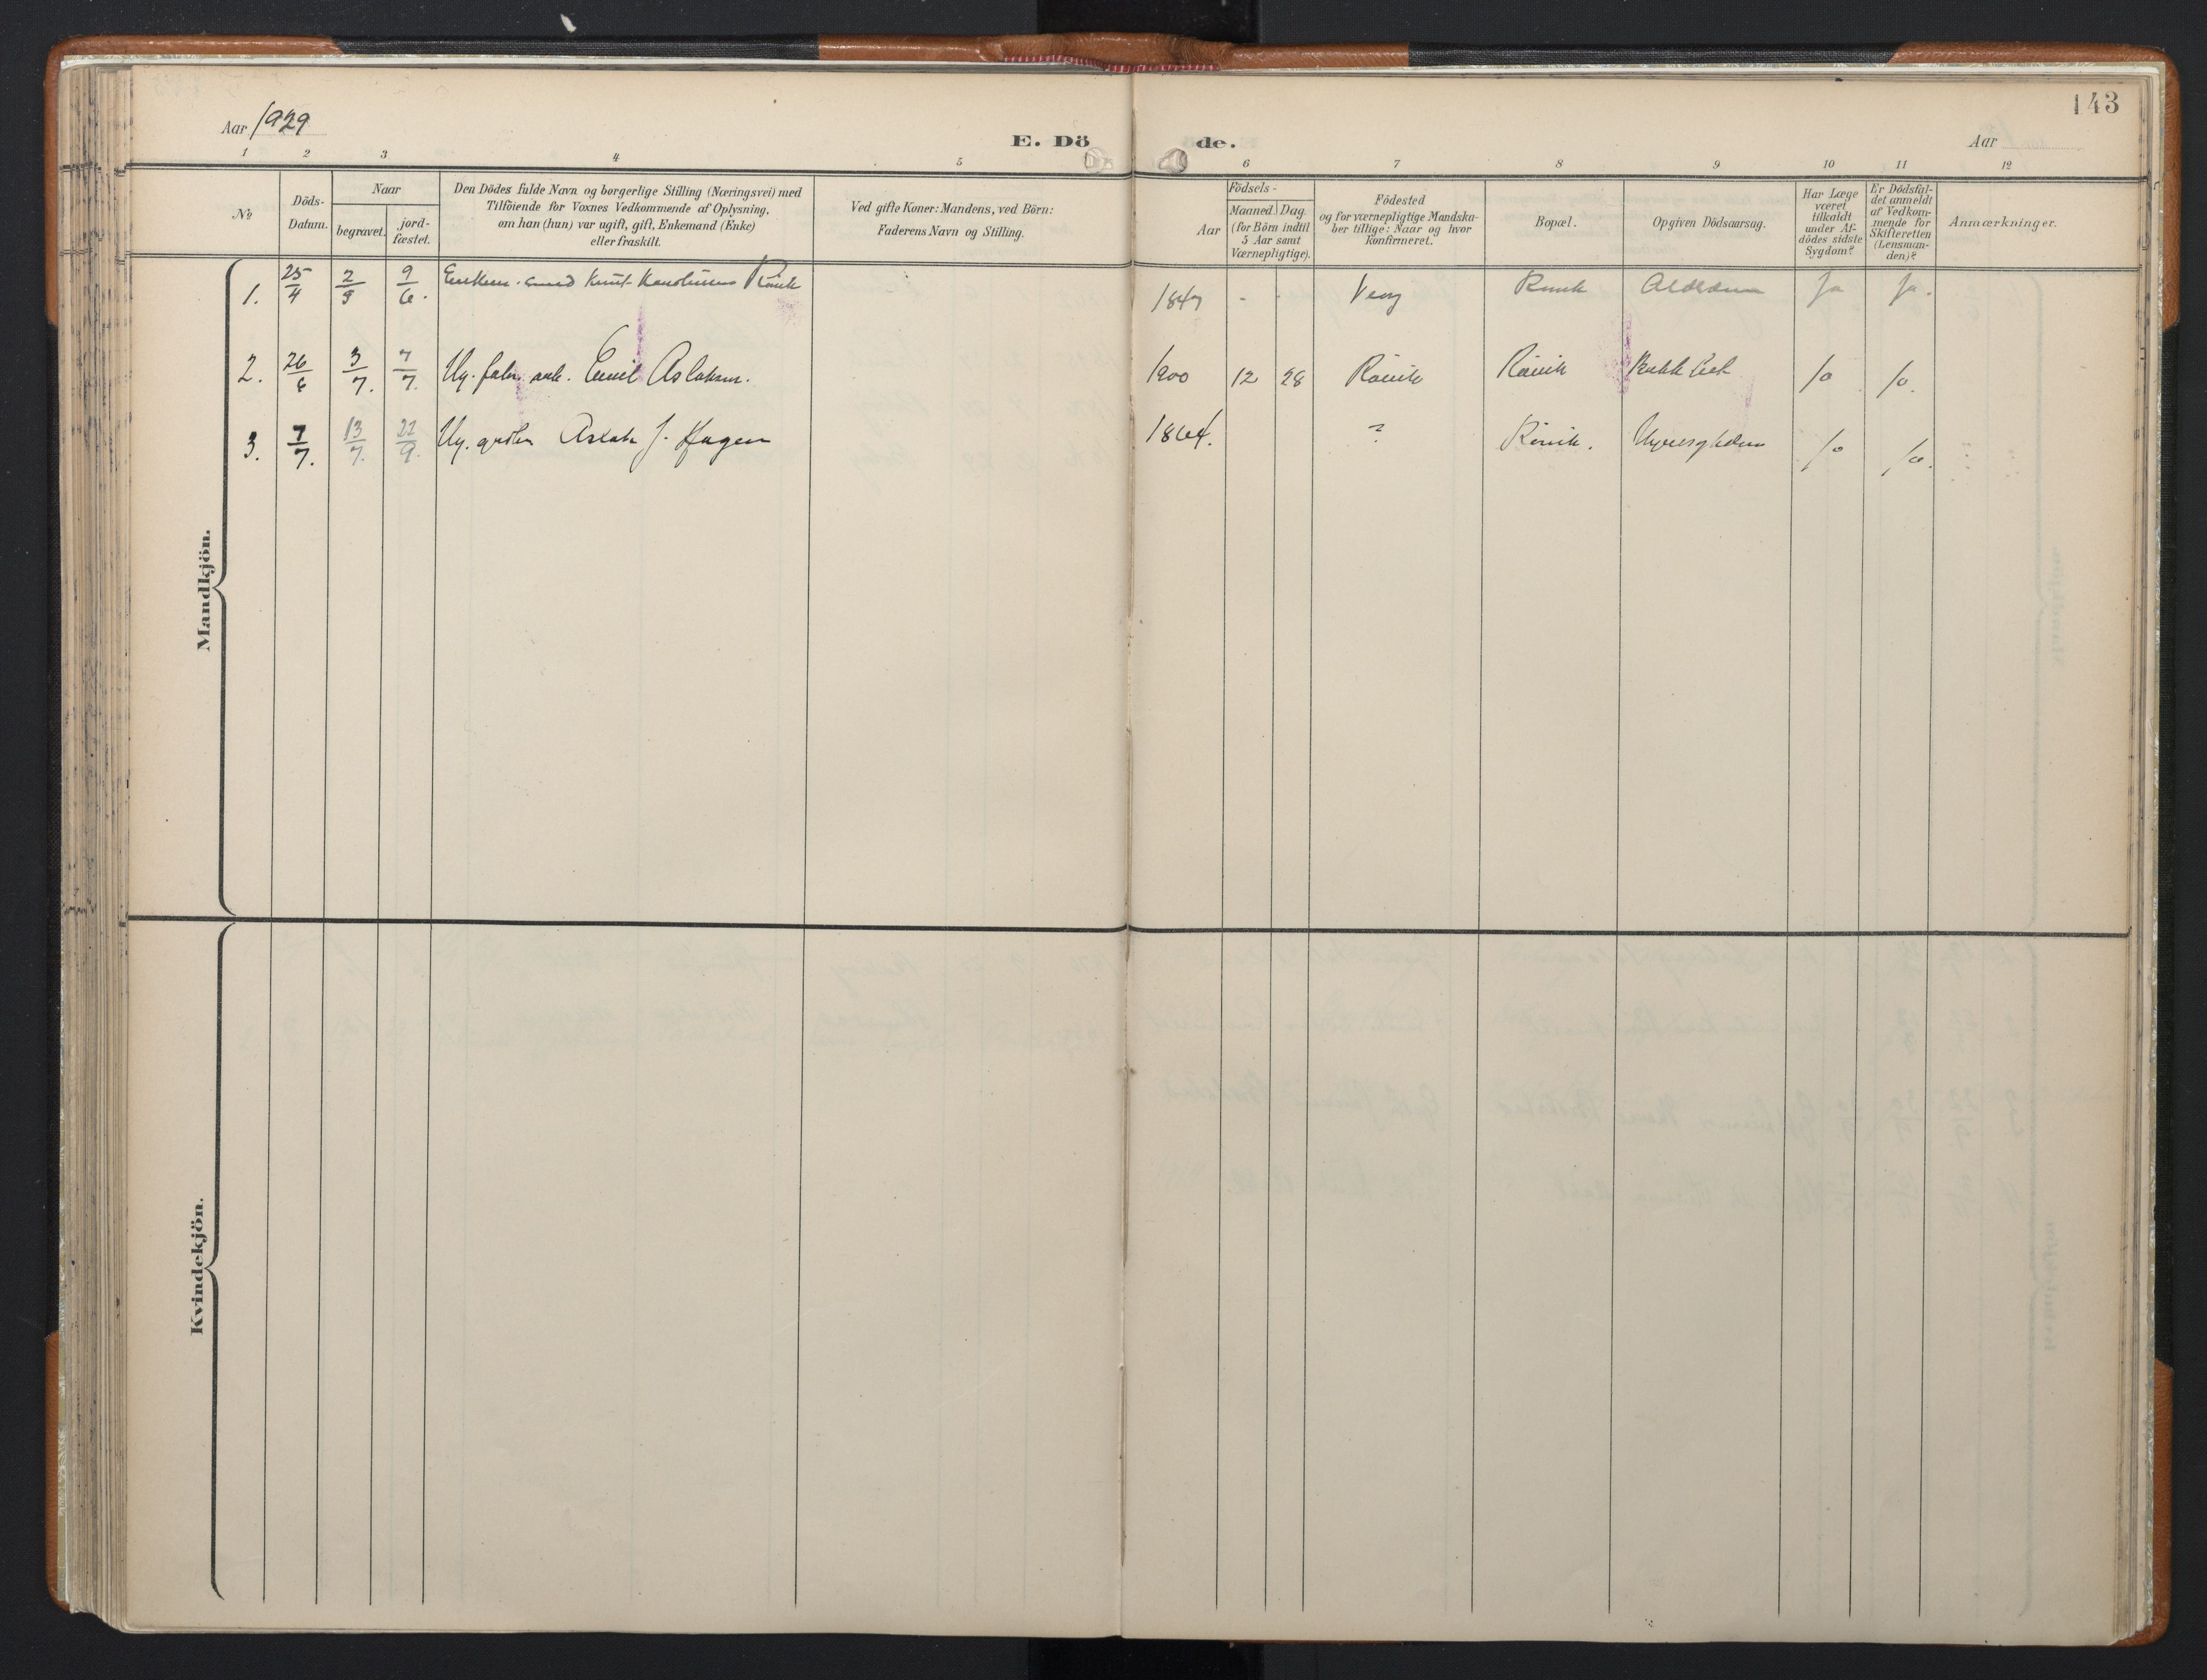 143
Aar 1929
E. Dö
de.
Aar
1 2 3 4 5 6 7 8 9 10 11 12
№
Döds-
Datum.
Naar
begravet.
jord-
fæstet.
Den Dödes fulde Navn og borgerlige Stilling (Næringsvei) med
Tilföiende for Voxnes Vedkommende af Oplysning,
om han (hun) var ugift, gift, Enkemand (Enke)
eller fraskilt.
Ved gifte Koner: Mandens, ved Börn:
Faderens Navn og Stilling.
Födsels-
Aar
Maaned.
Dag.
(for Börn indtil
5 Aar samt
Værnepligtige).
Födested
og for værnepligtige Mandska-
ber tillige: Naar og hvor
Konfirmeret.
Bopæl.
Opgiven Dödsaarsag.
Har Læge
været
tilkaldt
under Af-
dödes sidste
Sygdom?
Er Dödsfal-
det anmeldt
af Vedkom-
mende for
Skifteretten
(Lensman-
den)?
Anmærkninger.
Mandkjön.
1. 25/4 9/6. Knut 1847 - - Ja Ja.
2. 26/6 3/7. 7/7. Ug. Emil Aslaksen. 1900 12 28 Ja Ja.
3. 7/7. 13/7. 22/9. Ug. Aslak J. Hagen 1864. ? Ja Ja.
Kvindekjön.